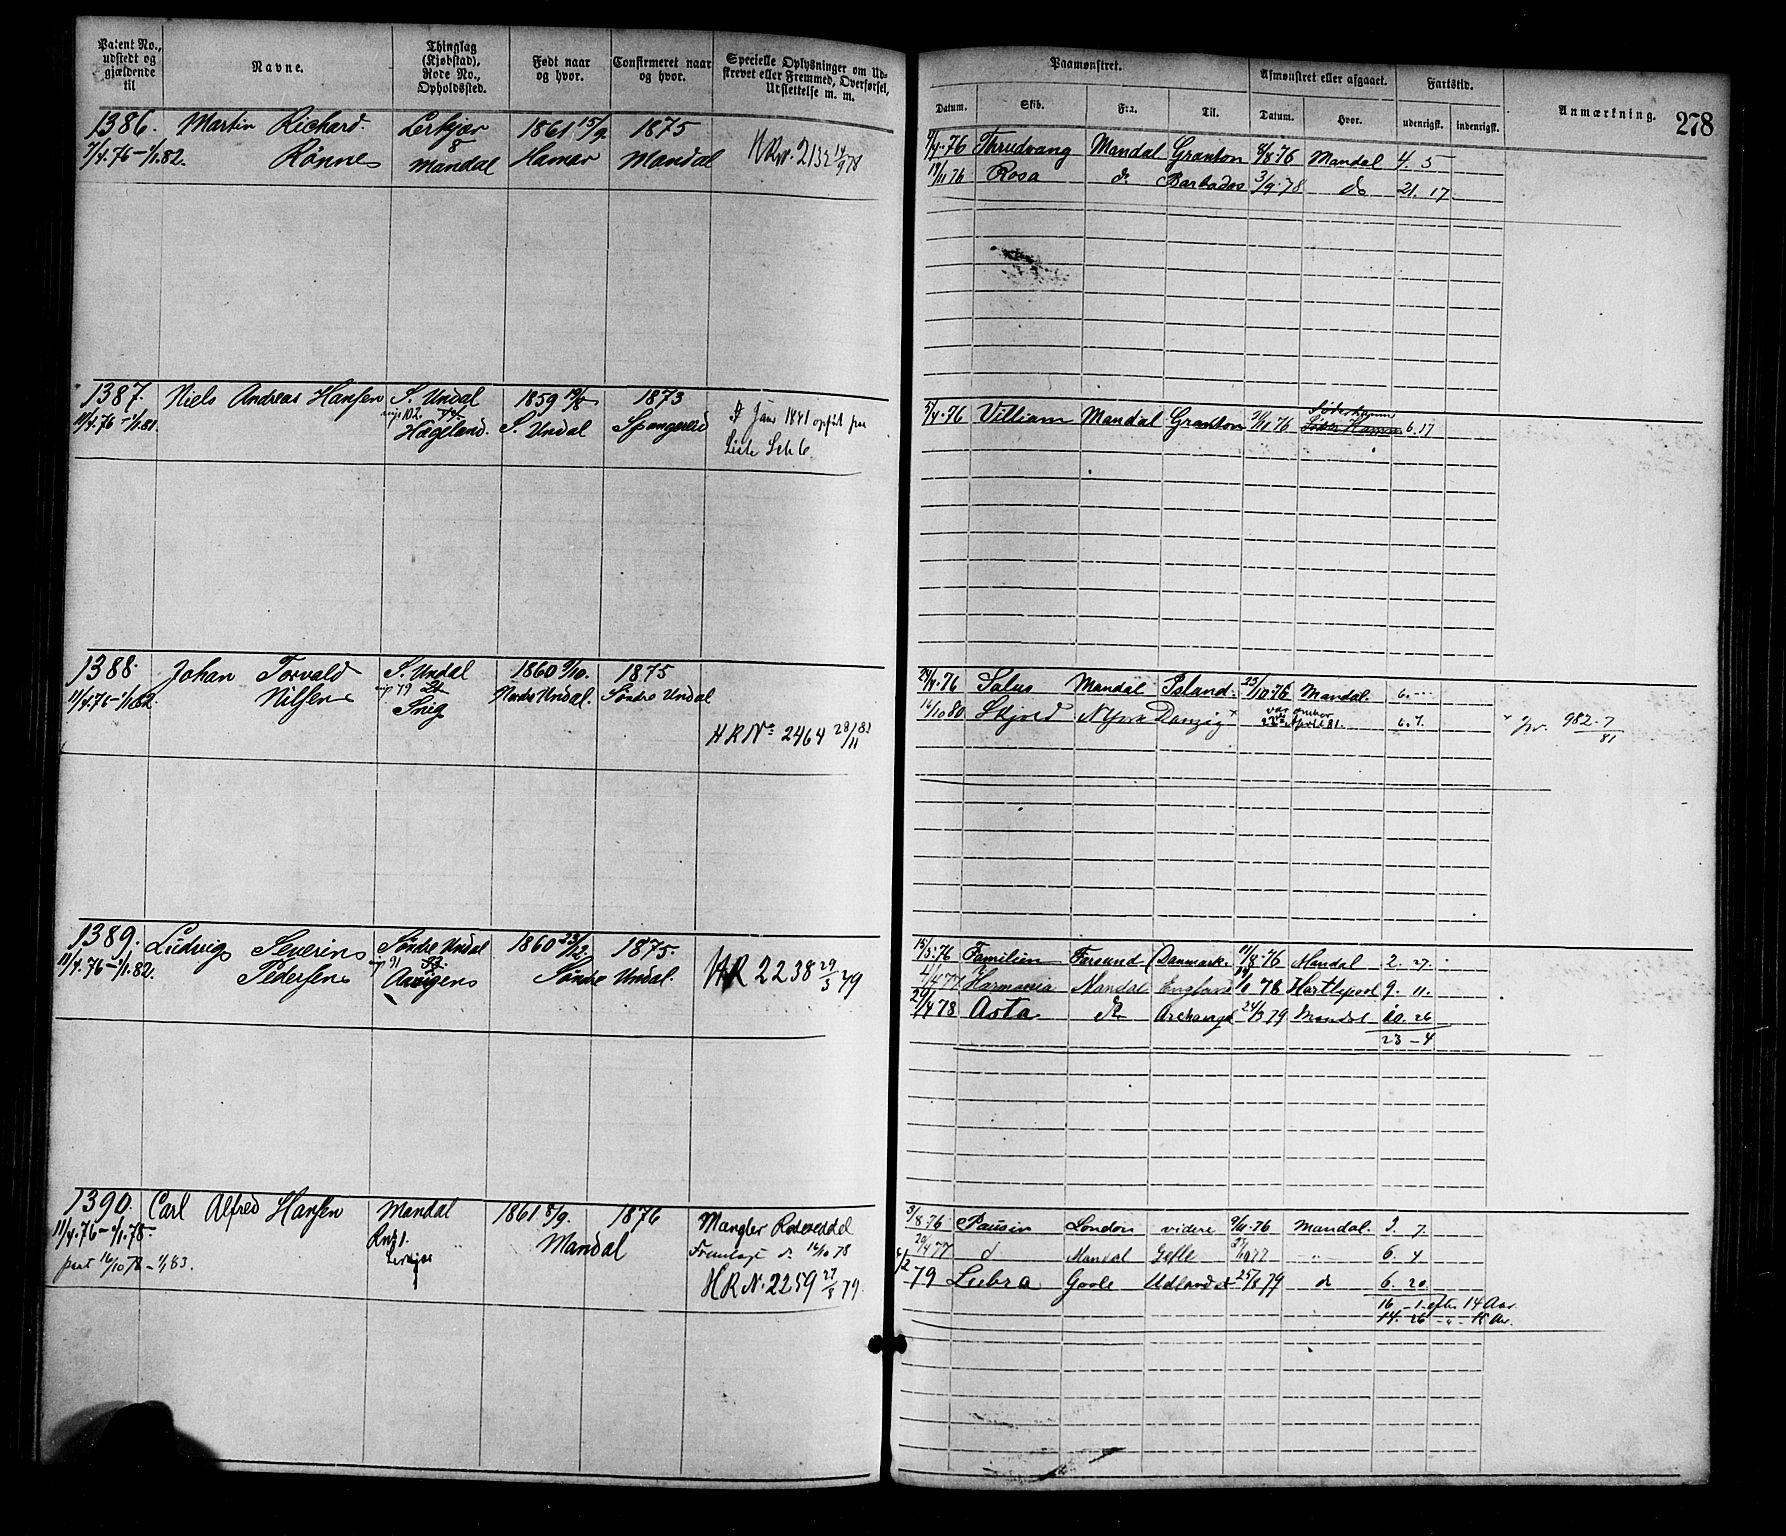 Patent No., udstedt og gjældende til
Navne.
Thinglag (Kjøbstad), Rode No., Opholdssted.
Født naar og hvor.
Confirmeret naar og hvor.
Specielle Oplysninger om Udskrevet eller Fremmed, Overførsel, Udslettelse m. m.
Paamønstret.
Afmønstret eller afgaaet.
Fartstid.
Anmærkning.
278
Datum. Skib. Fra. Til. Datum. Hvor. udenrigsk. indenrigsk.
1386. Martin Richard Lerkjær 1861 15/9 1875
7/4.76-1/1.82. Rønnes 8 Mandal Hamer Mandal
4/4.76 Thrudvang Mandal Granton 8/8.76 Mandal 4. 5
18/11 76 Rosa do Barbados 3/9.78 do 21. 17
1387. Niels Andreas Hansen S. Undal 1859 1873
11/4.76-1/1.81. Hægeland. S. Undal Spangereid
Liste
/4.76 Villiam Mandal Granton 76 Söderhamn 6.17
1388. Johan Torvald S. Undal 1860 1875
11/4.76-1/1.82. Nilsen Snig Nordre Undal. Søndre Undal
HRNo 2464 28/11 82
24/4.76 Salus Mandal Island. 25/10.76 Mandal. 6. --
16/10 80 Skjold NYork Danzig April 81. 6.7. 982.7/81
1389. Ludvig Severin Søndre Undal 1860 23/12. 1875.
11/4.76-1/1.82. Pedersen Søndre Undal. HR 2238 29/3 79
15/5.76 Familien Farsund Danmark. /8.76 Mandal 2. 27.
4/4 77 Harmonia Mandal England 78 Hartlepool 9. 11.
/4 78 Asta do Archangel 24/3 79 Mandal 10. 26
23-4
1390. Carl Alfred Hansen Mandal 1861 8/9. 1876
11/4.76-1/1.78. Mandal
16/10 78-1/1 83. Lerkjær
Mangler Rodeseddel
Fremlagt do 16/10 78
HRN. 2259 27/3 79.
3/8.76 London videre 9/11.76 Mandal. 3. 7.
20/4 77 d Mandal Gefle " 6. 4
79 Lubra Goole Udlandet 25/3 79 do 6. 20.
16-1. efter 14 Aar.
14. 26 -"- 15 Aar.